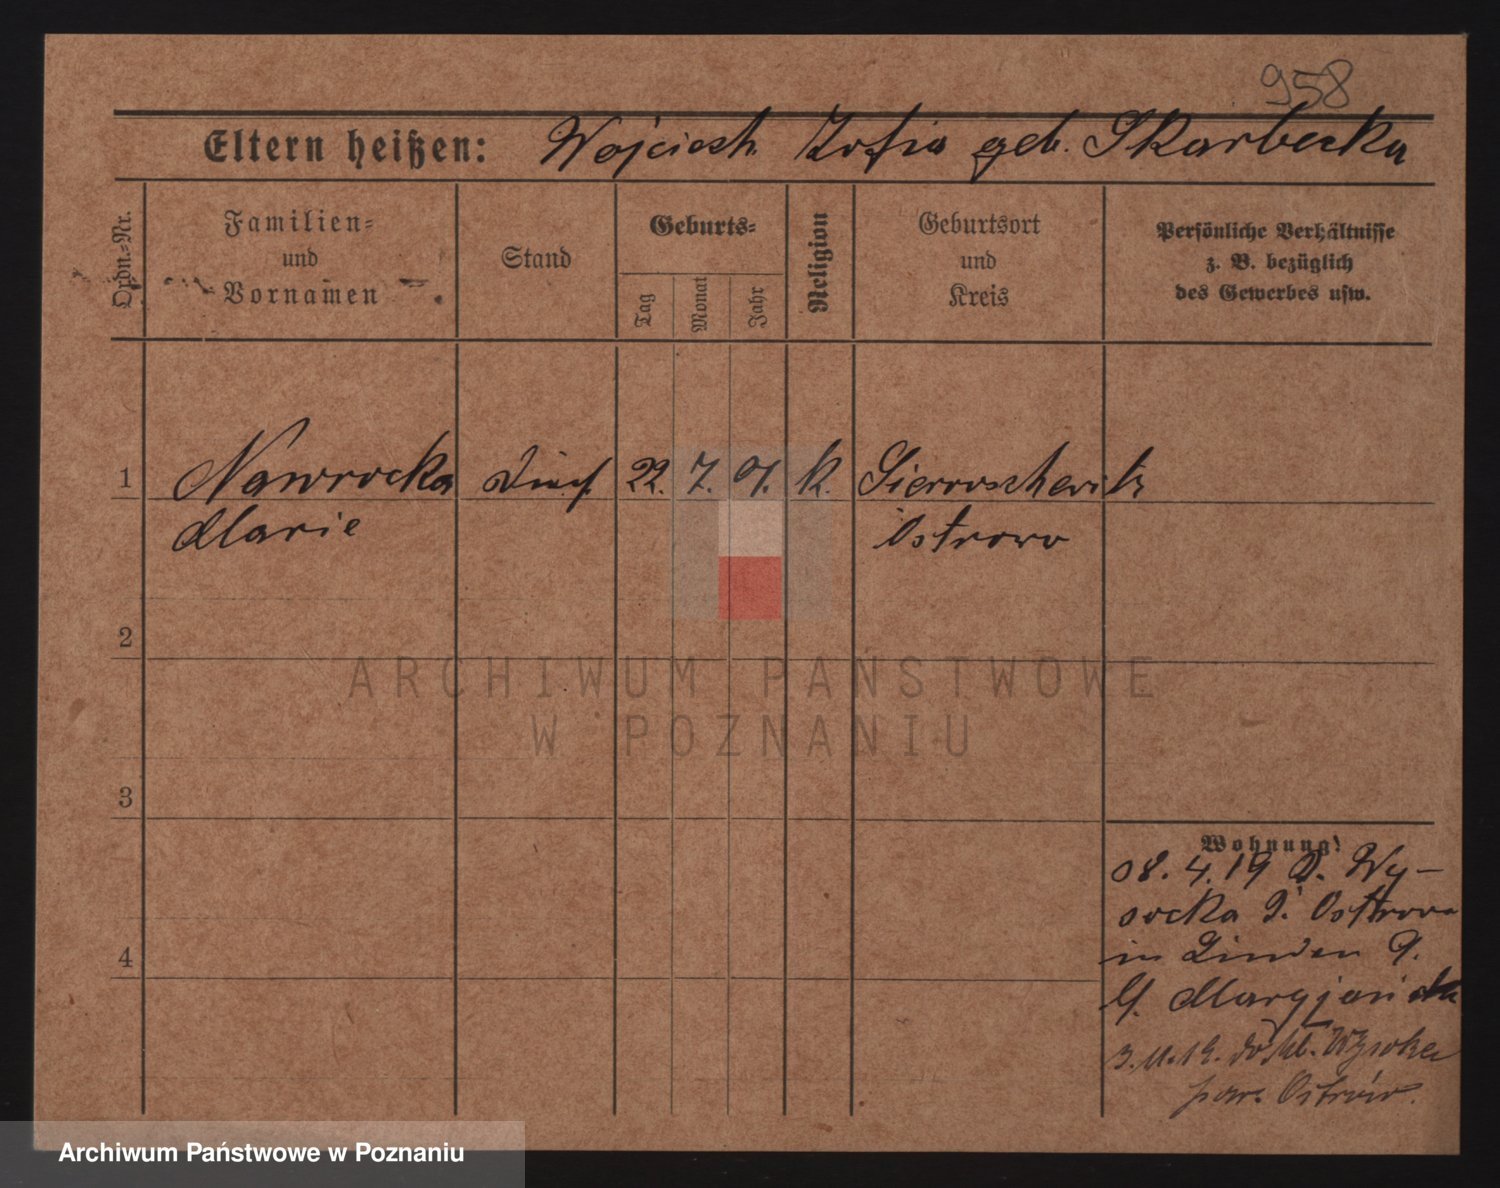 958
Eltern heißen: Wojciech Zofia geb. Skarbecka
Ordn.-Nr.
Familien-
und
Vornamen
Stand
Geburts-
Tag
Monat
Jahr
Religion
Geburtsort
und
Kreis
Persönliche Verhältnisse
z. B. bezüglich
des Gewerbes usw.
1 Nawrocka 22. 7. 01. k. Sieroschewitz
Marie Ostrowo
2
3
4
Wohnung:
08. 4. 19 D. Wy-
socka P. Ostrowo
in Linden P.
b. Maryjan
3. 11. 19. do Mł. Wysocka
pow. Ostrów.
ARCHIWUM PAŃSTWOWE
W POZNANIU
Archiwum Państwowe w Poznaniu